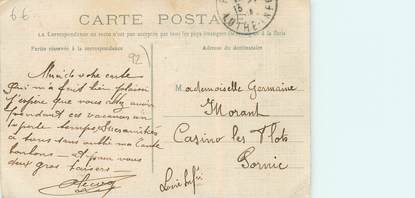 66
CARTE POSTALE
La Correspondance au recto n'est pas acceptée par tous les pays étrangers
Partie réservée à la correspondance
Adresse du destinataire
92
Merci de votre carte
qui m'a fait bien plaisir
J'espère que vous avoir
pendant ces vacances un
temps amitiés
à tous sans oublier ma Tante
Et pour vous
deux gros baisers
Mademoiselle Germaine
Morant
Casino les Flots
Pornic
Loire Infre